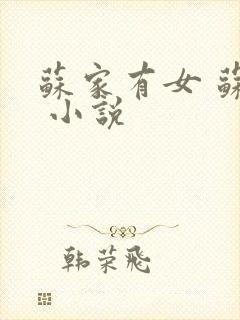 蘇家有女 蘇
小說
韩荣飛